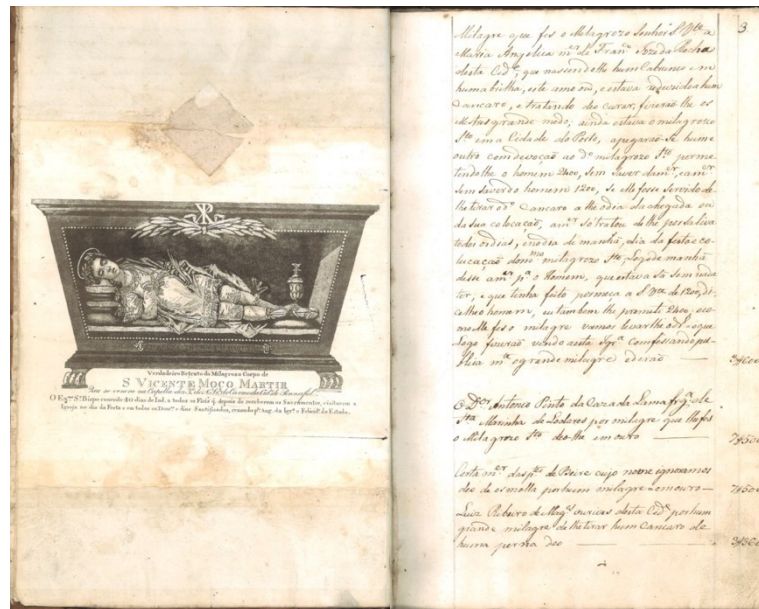 Verdadeiro Retrato do Milagroso Corpo de
S VICENTE MOÇO MARTIR
Que se venera na Capella da V. de N. S. do Carmo da Cid. de Penafiel.
O Ex.mo Sr. Bispo concede 40 dias de Ind. a todos os Fieis q. depois de receberem os Sacramentos, visitarem a
Igreja no dia da Festa e em todos os Dom.os e dias Santificados, orando p.lo Aug. da Igr.a e Felicid.e do Estado.
3
Milagre que fes o Milagrozo Senhor S. Vte a
Maria Angelica m.er de Fran.co da Rocha
desta Cid.e, que nascendolhe hum Cabrunco em
huma orelha, estava reduzido a hum
Cancaro, e tratando de o curar, fizerão lhe os
Mestres grande medo; ainda estava o milagrozo
S.to em a Cidade do Porto, apegarão-se hum e
outro com devoção ao d.o milagrozo S.to perme
tendolhe o homem 2400, sem saver da m.er, e a m.er
sem saver do homem 1200, se elle fosse servido de
lhe tirar o d.o Cancaro athe o dia da chegada ou
da sua colocação, a m.er só tratou de lhe por saliva
todos os dias, e no dia de manhã, dia da festa e co-
lucação do m.mo milagrozo S.to, logo de manhã
desse a m.er p.a o Homem, que estava sã sem nada
ter, e que tinha feito permeça a S. Vte de 1200, di-
ce lhe o homem, eu tambem lhe prometi 2400, e co-
mo elle fes o milagre vamos levarlhe o d.o que
logo fizerão vindo a esta Igr.a confessando pu-
blica m.te o grande milagre e derão
3$600
O D.or Antonio Pinto da Caza de Lema frg.a de
Sta Marinha de Lodares por milagre que lhe fes
o Milagrozo S.to deo-lhe em ouro
7$500
Certa m.er das p.tes de Beire cujo nome ignoramos
deo de esmolla por hum milagre em ouro
7$500
Luiz Ribeiro de Mag.es ourives desta Cid.e por hum
grande milagre de lhe tirar hum Cancaro de
huma perna deo